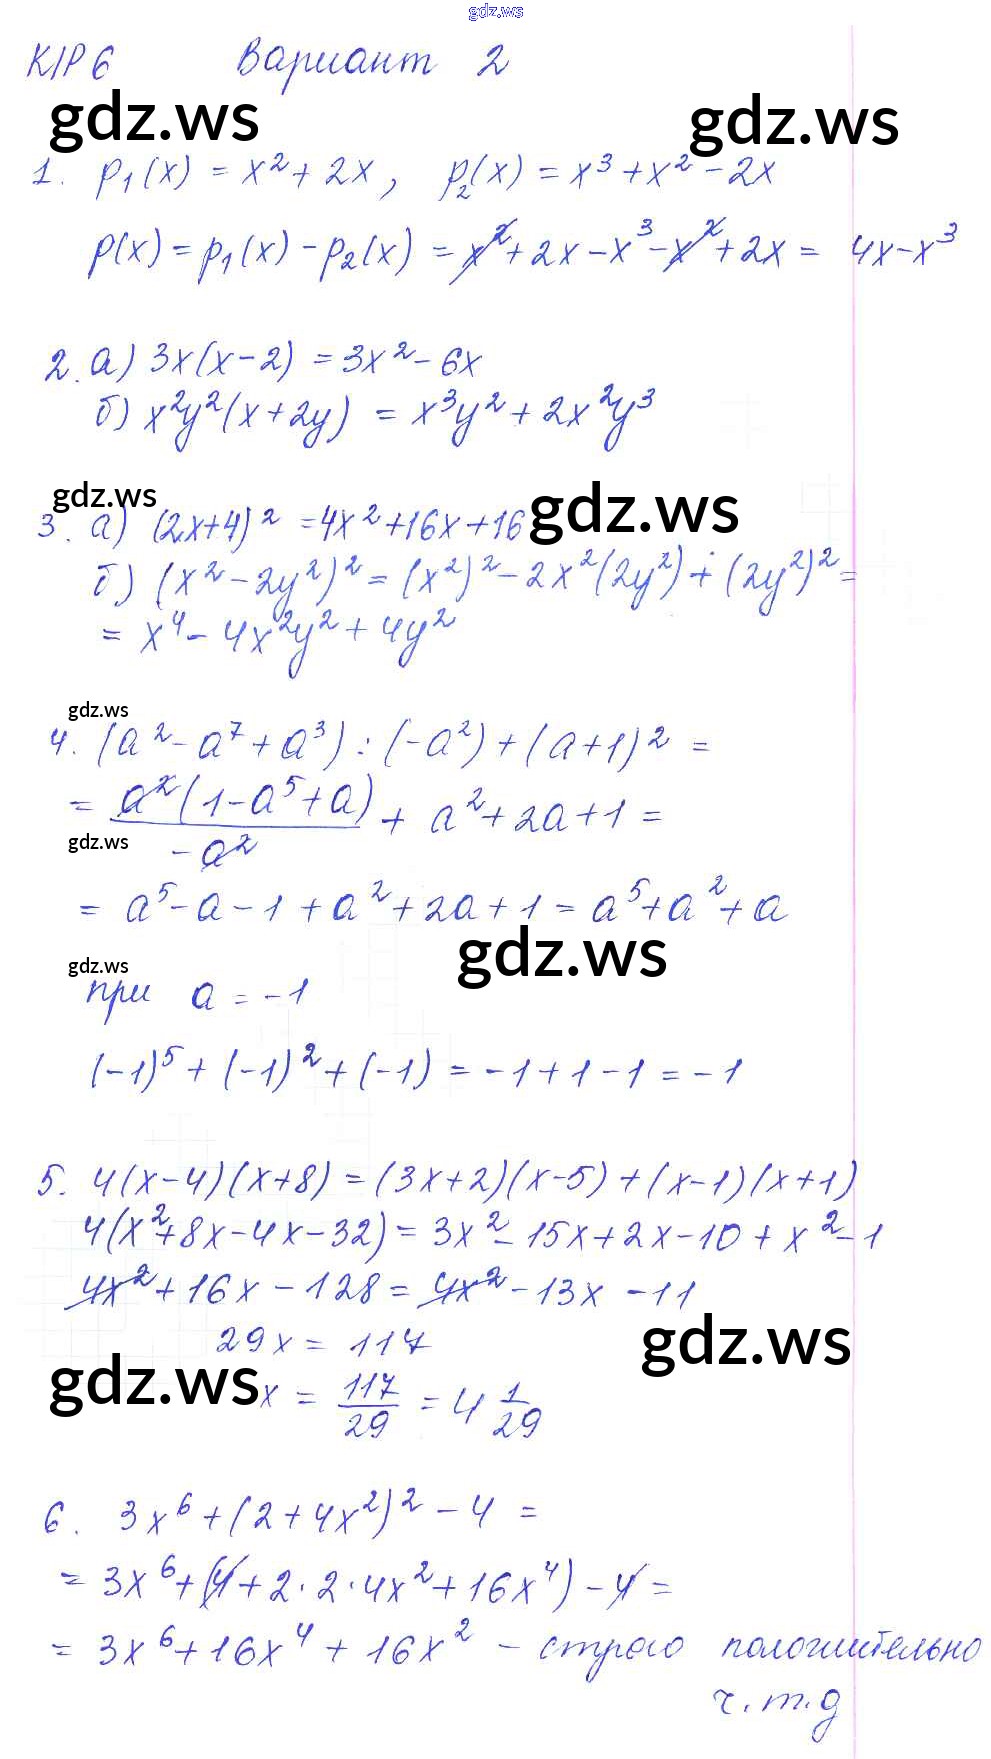 gdz.ws
К/Р 6 Вариант 2
gdz.ws gdz.ws
1. p₁(x) = x² + 2x, p₂(x) = x³ + x² - 2x
p(x) = p₁(x) - p₂(x) = x² + 2x - x³ - x² + 2x = 4x - x³
2. а) 3x(x-2) = 3x² - 6x
б) x²y²(x+2y) = x³y² + 2x²y³
gdz.ws gdz.ws
3. а) (2x+4)² = 4x² + 16x + 16
б) (x² - 2y²)² = (x²)² - 2x²(2y²) + (2y²)² =
= x⁴ - 4x²y² + 4y²
gdz.ws
4. (a² - a⁷ + a³) : (-a²) + (a+1)² =
= a²(1 - a⁵ + a)/-a² + a² + 2a + 1 =
gdz.ws
= a⁵ - a - 1 + a² + 2a + 1 = a⁵ + a² + a
gdz.ws
gdz.ws
при a = -1
(-1)⁵ + (-1)² + (-1) = -1 + 1 - 1 = -1
5. 4(x-4)(x+8) = (3x+2)(x-5) + (x-1)(x+1)
4(x² + 8x - 4x - 32) = 3x² - 15x + 2x - 10 + x² - 1
4x² + 16x - 128 = 4x² - 13x - 11
29x = 117
gdz.ws
gdz.ws
x = 117/29 = 4 1/29
6. 3x⁶ + (2 + 4x²)² - 4 =
= 3x⁶ + (4 + 2·2·4x² + 16x⁴) - 4 =
= 3x⁶ + 16x⁴ + 16x² - строго положительно
ч.т.д